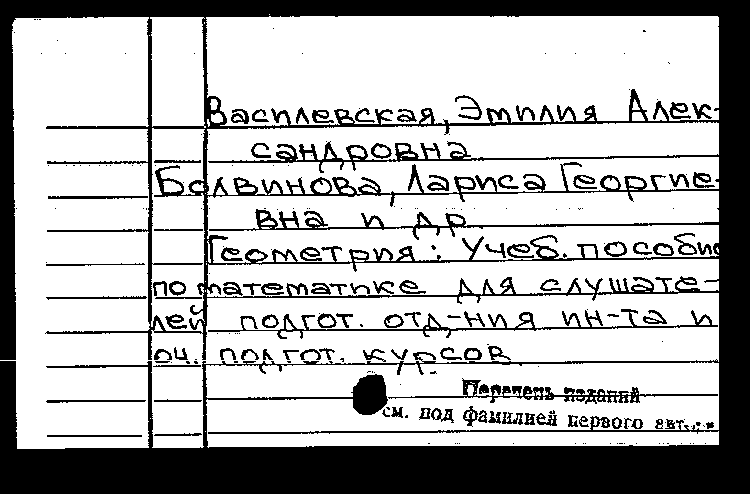 Василевская, Эмилия Алек-
сандровна
Болвинова, Лариса Георгие-
вна и др.
Геометрия: Учеб. пособие
по математике для слушате-
лей подгот. отд-ния ин-та и
оч. подгот. курсов
Перечень изданий
см. под фамилией первого авт.